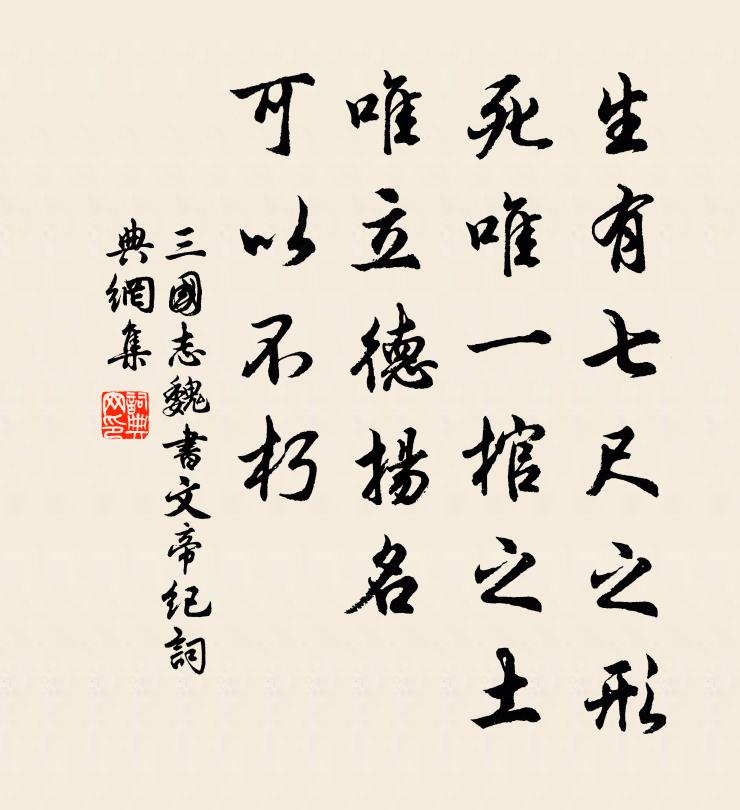 生有七尺之形
死唯一棺之土
唯立德揚名
可以不朽
三國志魏書文帝紀詞
典網集
詞典網印